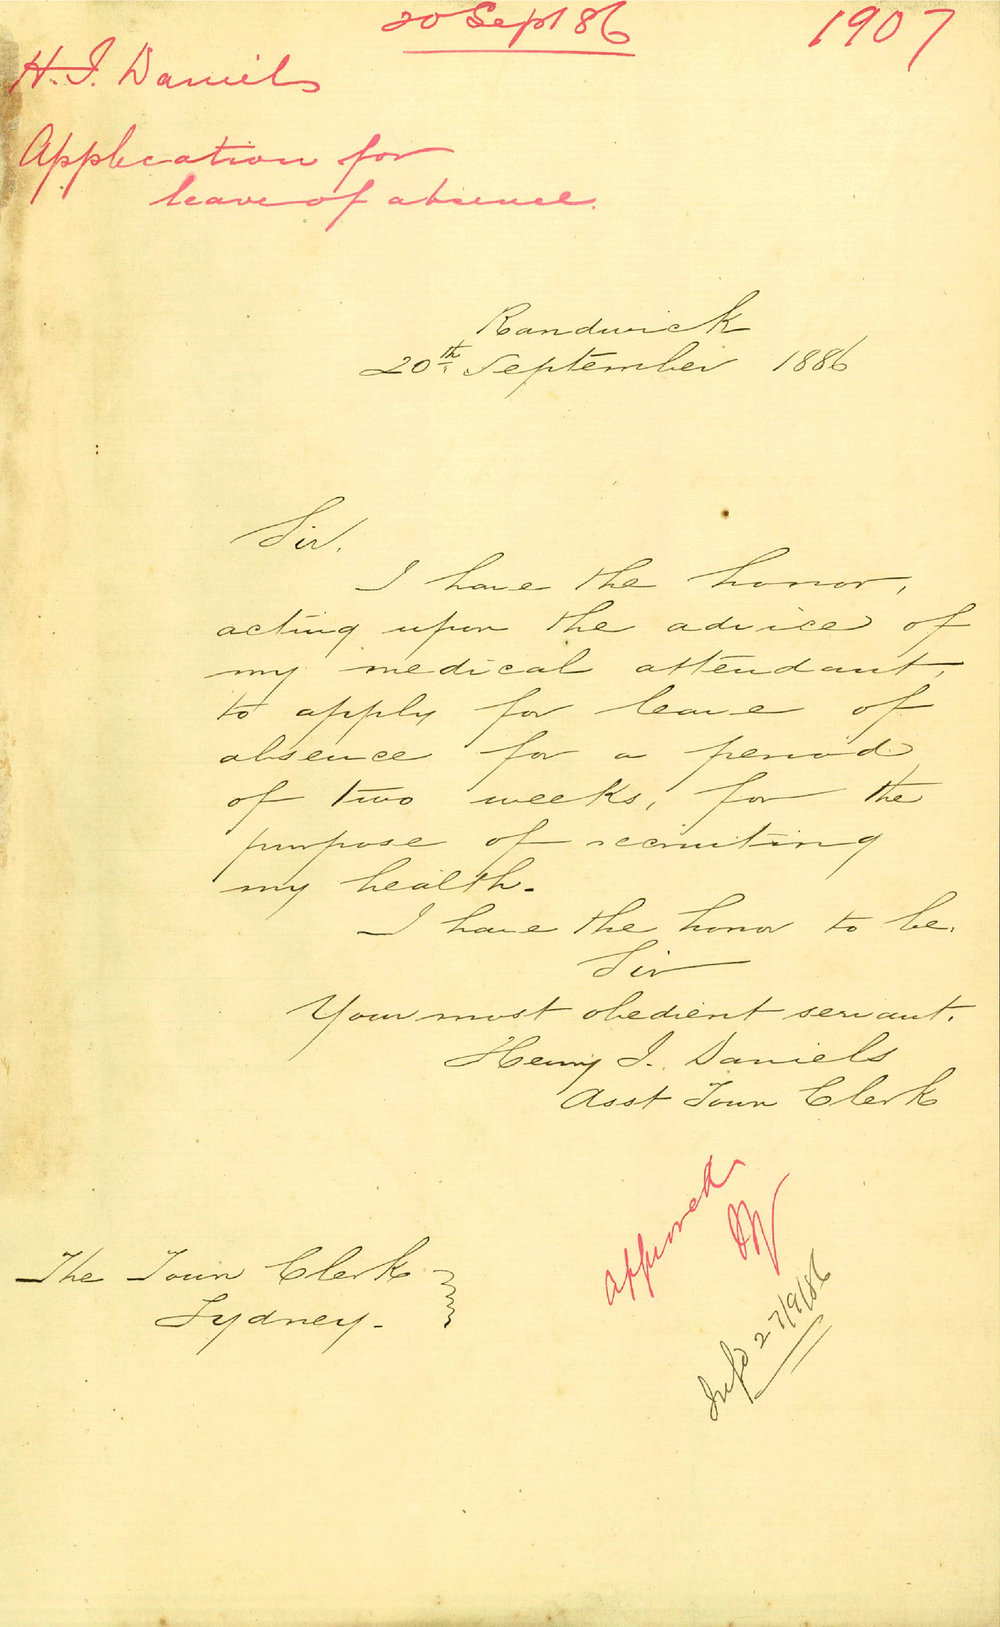 20 Sept 86
1907
H. J. Daniels
Application for
leave of absence.
Randwick
20th September 1886
Sir,
I have the honor,
acting upon the advice of
my medical attendant,
to apply for leave of
absence for a period
of two weeks, for the
purpose of recruiting
my health.
I have the honor to be,
Sir
Your most obedient servant.
Henry J. Daniels
Asst Town Clerk
Approved
The Town Clerk
Sydney.
Infd 27/9/86